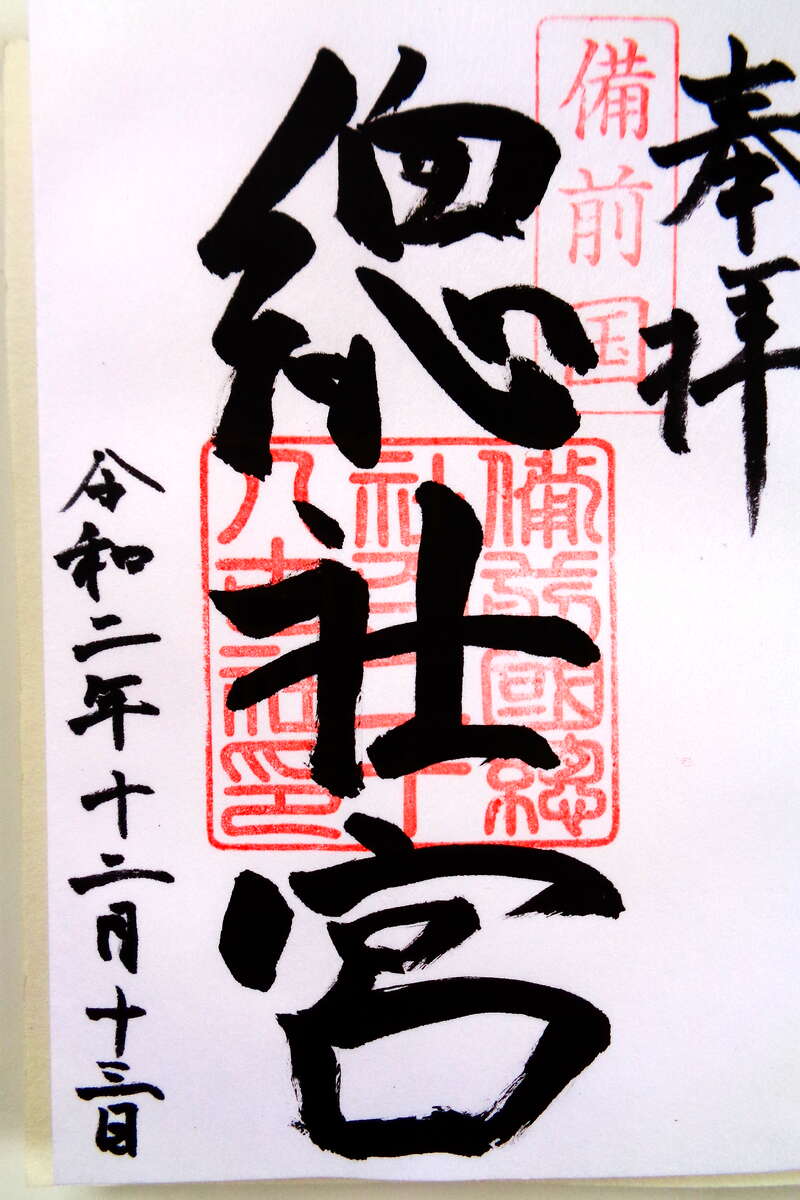 奉拝
備前国
總社宮
備前國總
令和二年十二月十三日